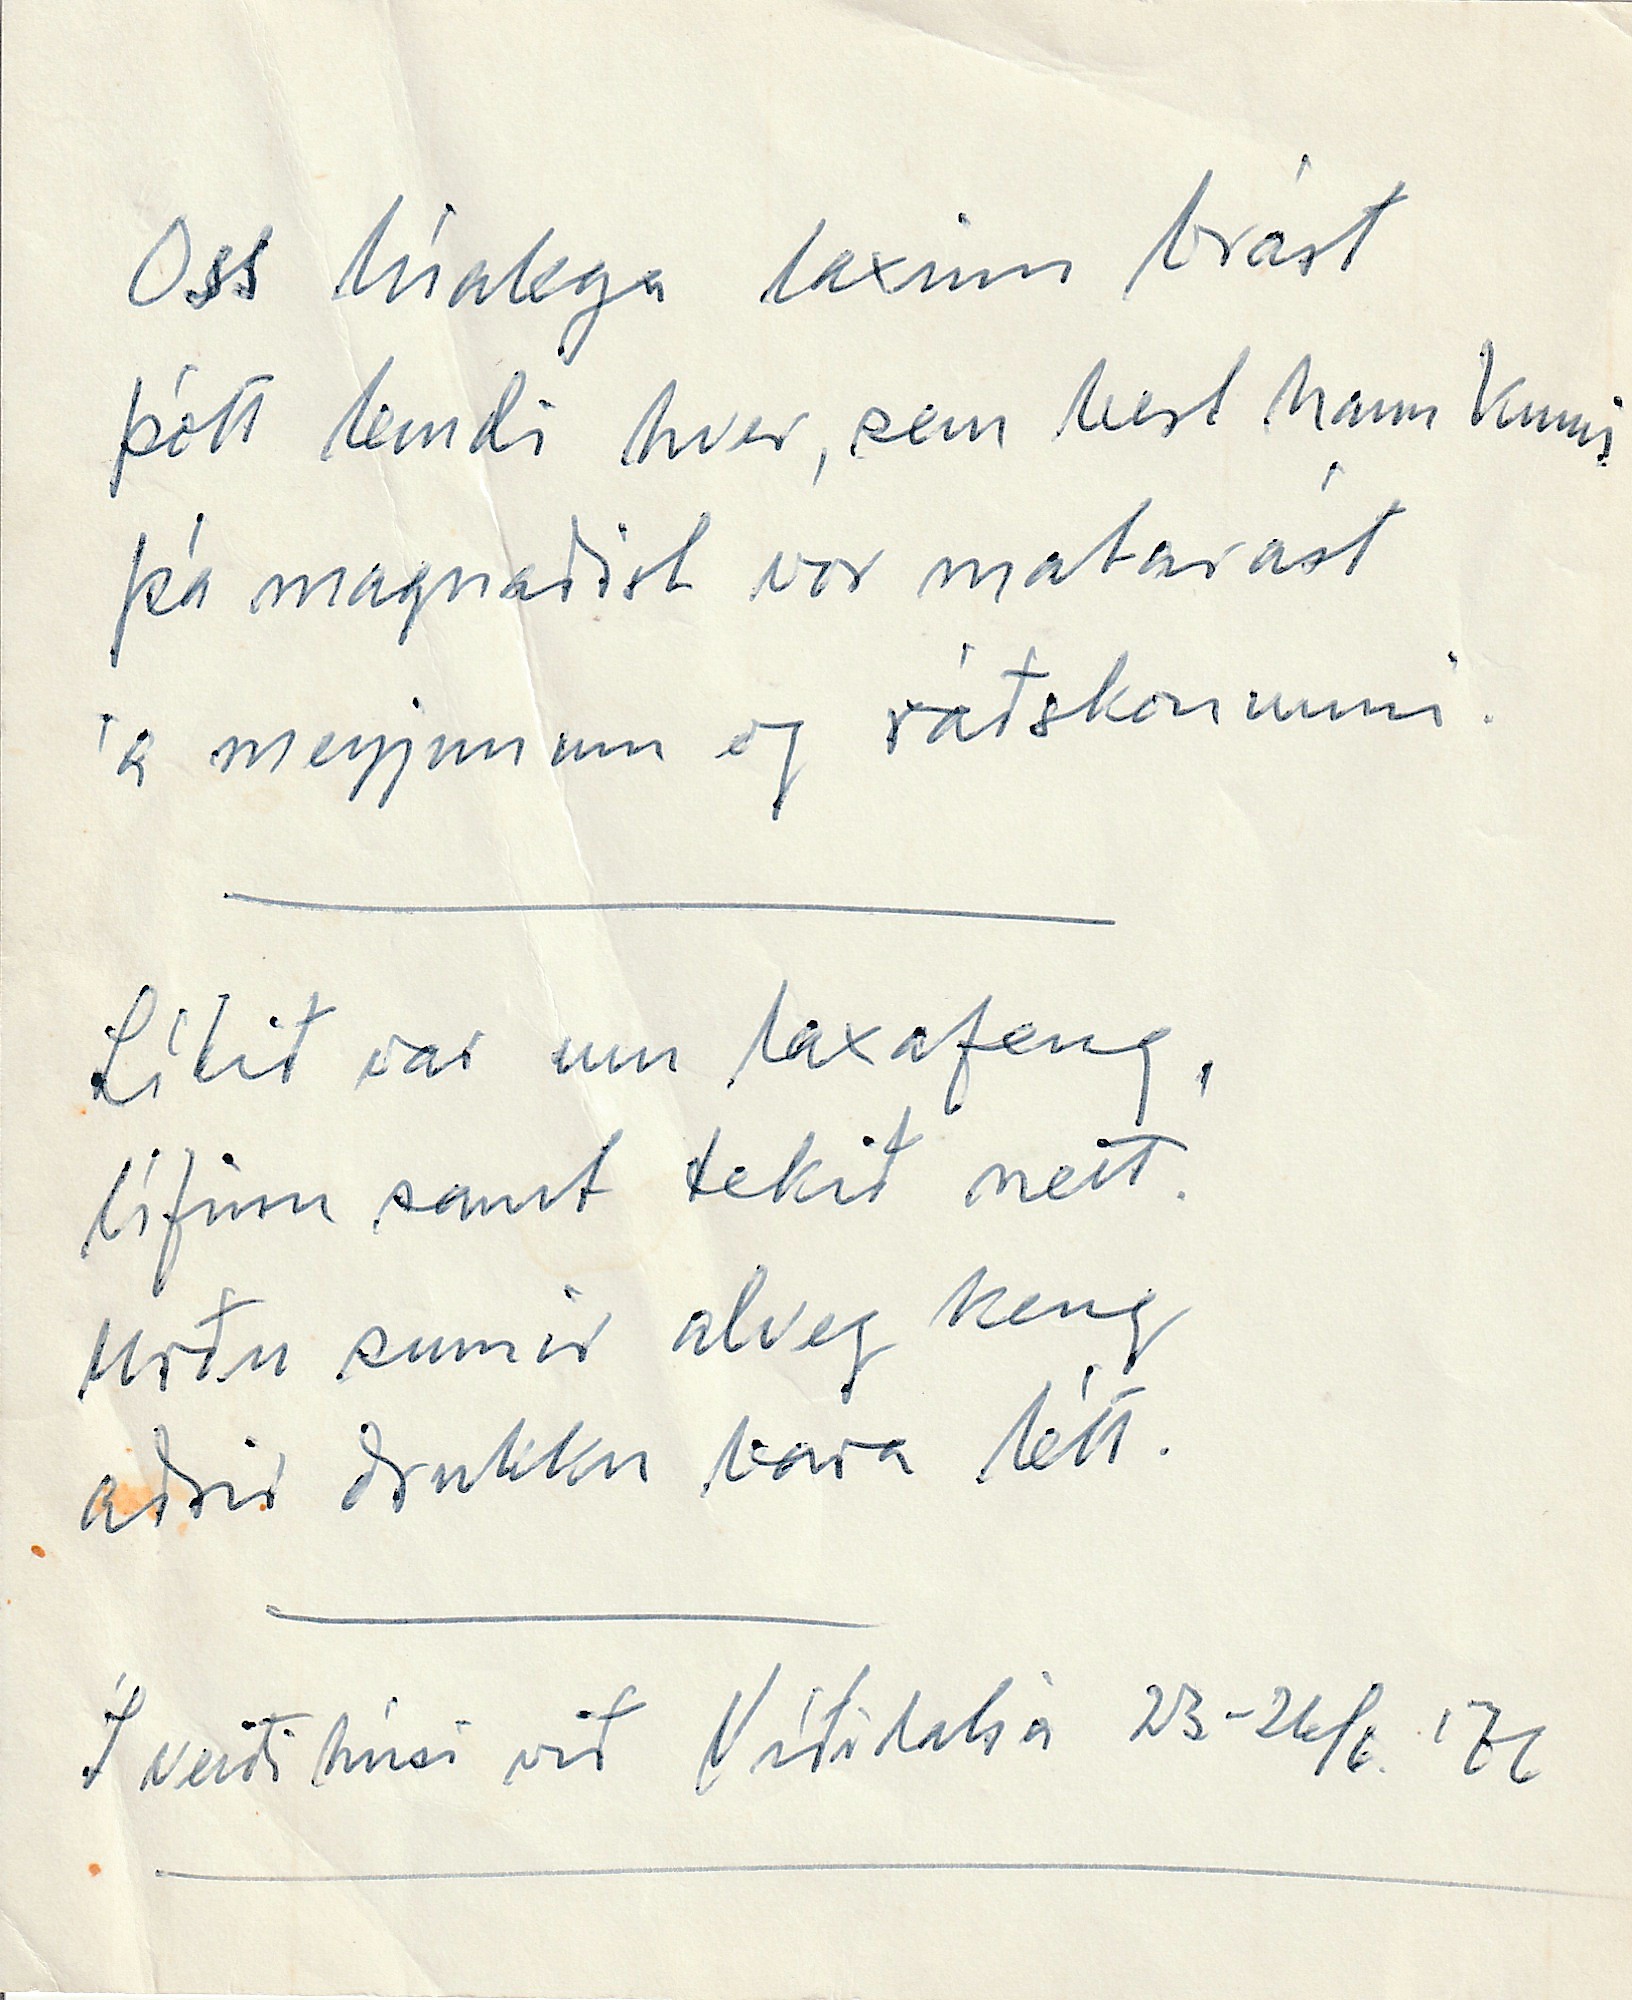 Oss hrálega laxinn brást
þótt lemdi hver, sem best hann kunni
þá magnaðist vor matarást
á meyjunum og ráðskonunni.
Lítið var um laxafeng,
lífinu samt tekið nett.
Urðu sumir alveg keng
aðrir drukku bara létt.
Í veiðihúsi við Víðidalsá 23-26/6. '76